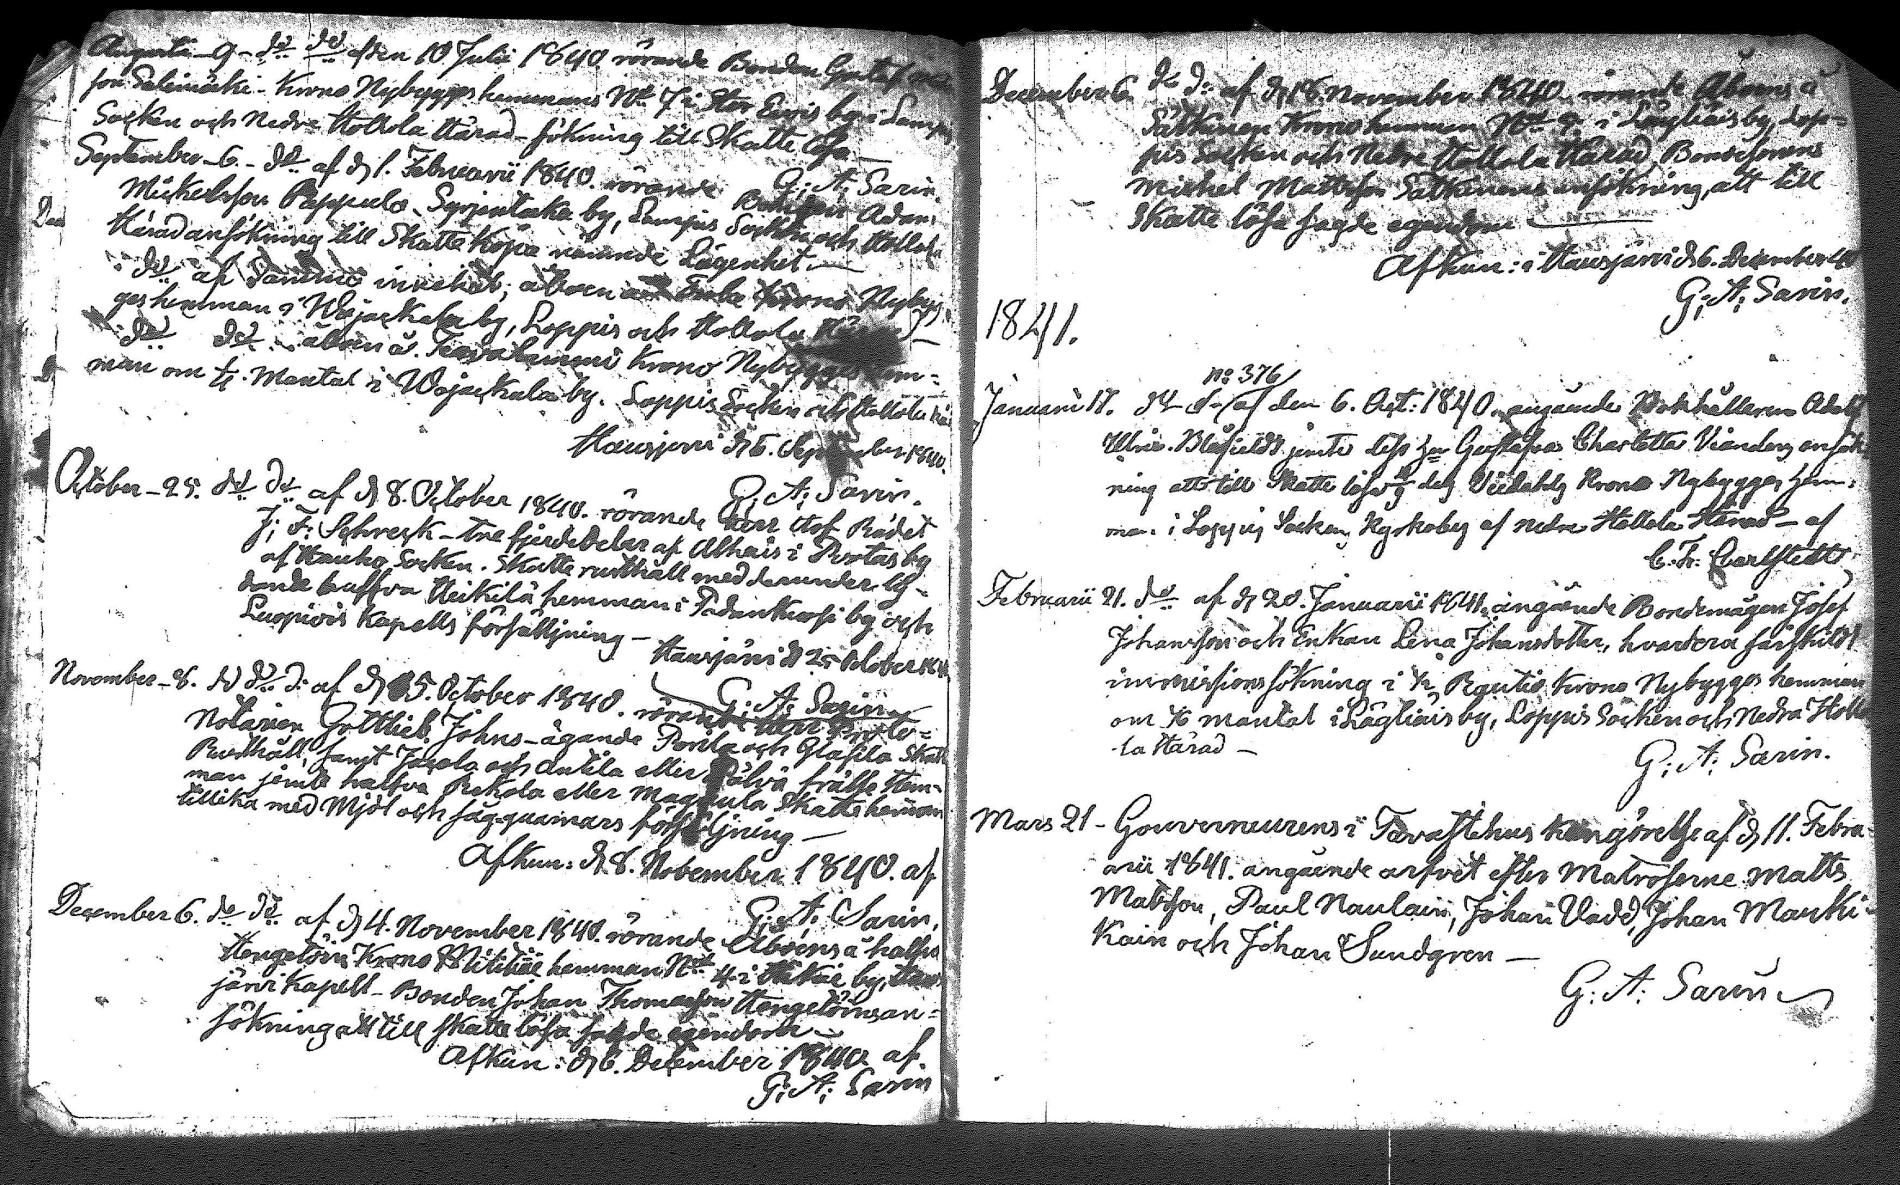 Augusti - 9 - d:o d:o af den 10 Julii 1840 rörande Bonden Gustaf
son Salimäcki - Krono Nybygges hemmans No 7 i Stor Evois by i Lampis
Socken och Nedre Hollola Härad - sökning till Skatte lösa -
G: A: Sarin
September - 6 - d:o af d 1. Februarii 1840. rörande Adam
Mickelsson Pappula - Syrjentaka by, Lampis Socken och Hollola
Härad ansökning till Skatte köpa nämnde Lägenhet. -
d:o af Tammo åboen Krono Nybyg-
ges hemman i Wojackala by, Loppis och Hollola
d:o d:o åboen å Krono Nybygges hem=
man om Mantal i Wojackala by. Loppis Socken och Hollola Hä
Hausjervi d 6. September 1840.
G: A: Sarin.
October - 25. d:o d:o af d 8. October 1840. rörande Herr Hof Rådet
J: F: Schreck - tre fjerdedelar af Alhais i Portas by
af Hauho Socken. Skatte rusthåll med derunder ly-
dande halfva Heikilä hemman i Padankorpi by och
Luopiois Kapells försäljning -
Hausjärvi d 25 October 1840
G: A: Sarin
November - 8. d:o d:o af d 5. October 1840. rörande Herr Proto=
Notarien Gottlieb Johns - ägande Portila och Glafila Skatte
Rusthåll, samt Jacola och Antila eller frälse Hem-
man jemte halfva Pekola eller Skatte hemman
tillika med Mjöl och sågquarnars försäljning -
Afkun: d 8. November 1840. af
G: A: Sarin.
December 6. d:o d:o af d 4. November 1840. rörande Åboens å halfva
Hengelöin Krono hemman No 4 i Hikiä by, Haus
järvi Kapell - Bonden Johan Thomasson Hengelöins an=
sökning att till skatte lösa sagde egendom -
Afkun: d 6. December 1840. af.
G: A: Sarin
December 6. d:o d: af d 18. November 1840. rörande Åboens å
Sälkinen Krono hemman No 9. i Lägliäis by, Lop=
pis Socken och Nedre Hollola Härad, Bondesonens
Michel Mattsson Sälkinens ansökning, att till
Skatte lösa sagde egendom -
Afkun: i Hausjärvi d 6. December 40
G: A: Sarin.
1841.
No 376
Januarii 17. d:o d:o af den 6. Oct: 1840. angående Bokhållaren Adolf
Ulric. Blåfields jemte dess Charlotta Vianders ansök
ning att till Skatte lösa Krono Nybygges hem=
man i Loppis Socken, Kyrkoby af nedre Hollola Härad - af
C. Fr. Carlstedt
Februarii 21. d:o af d 20. Januarii 1841. angående Bondemågen Josef
Johansson och Enkan Lena Johansdotter, hvartera särskildt
immissions sökning i 1/2 Krono Nybygges hemman
om mantal i Lägliäis by, Loppis Socken och Nedra Hollo
la Härad -
G: A: Sarin.
Mars 21 - Gouverneurens i Tavastehus kungörelse af d 11. Febru-
arii 1841. angående arfvet efter Matroserne Matts
Matsson, Paul Naulain, Johan Vadd, Johan Mauki-
kain och Johan Sundgren -
G: A: Sarin